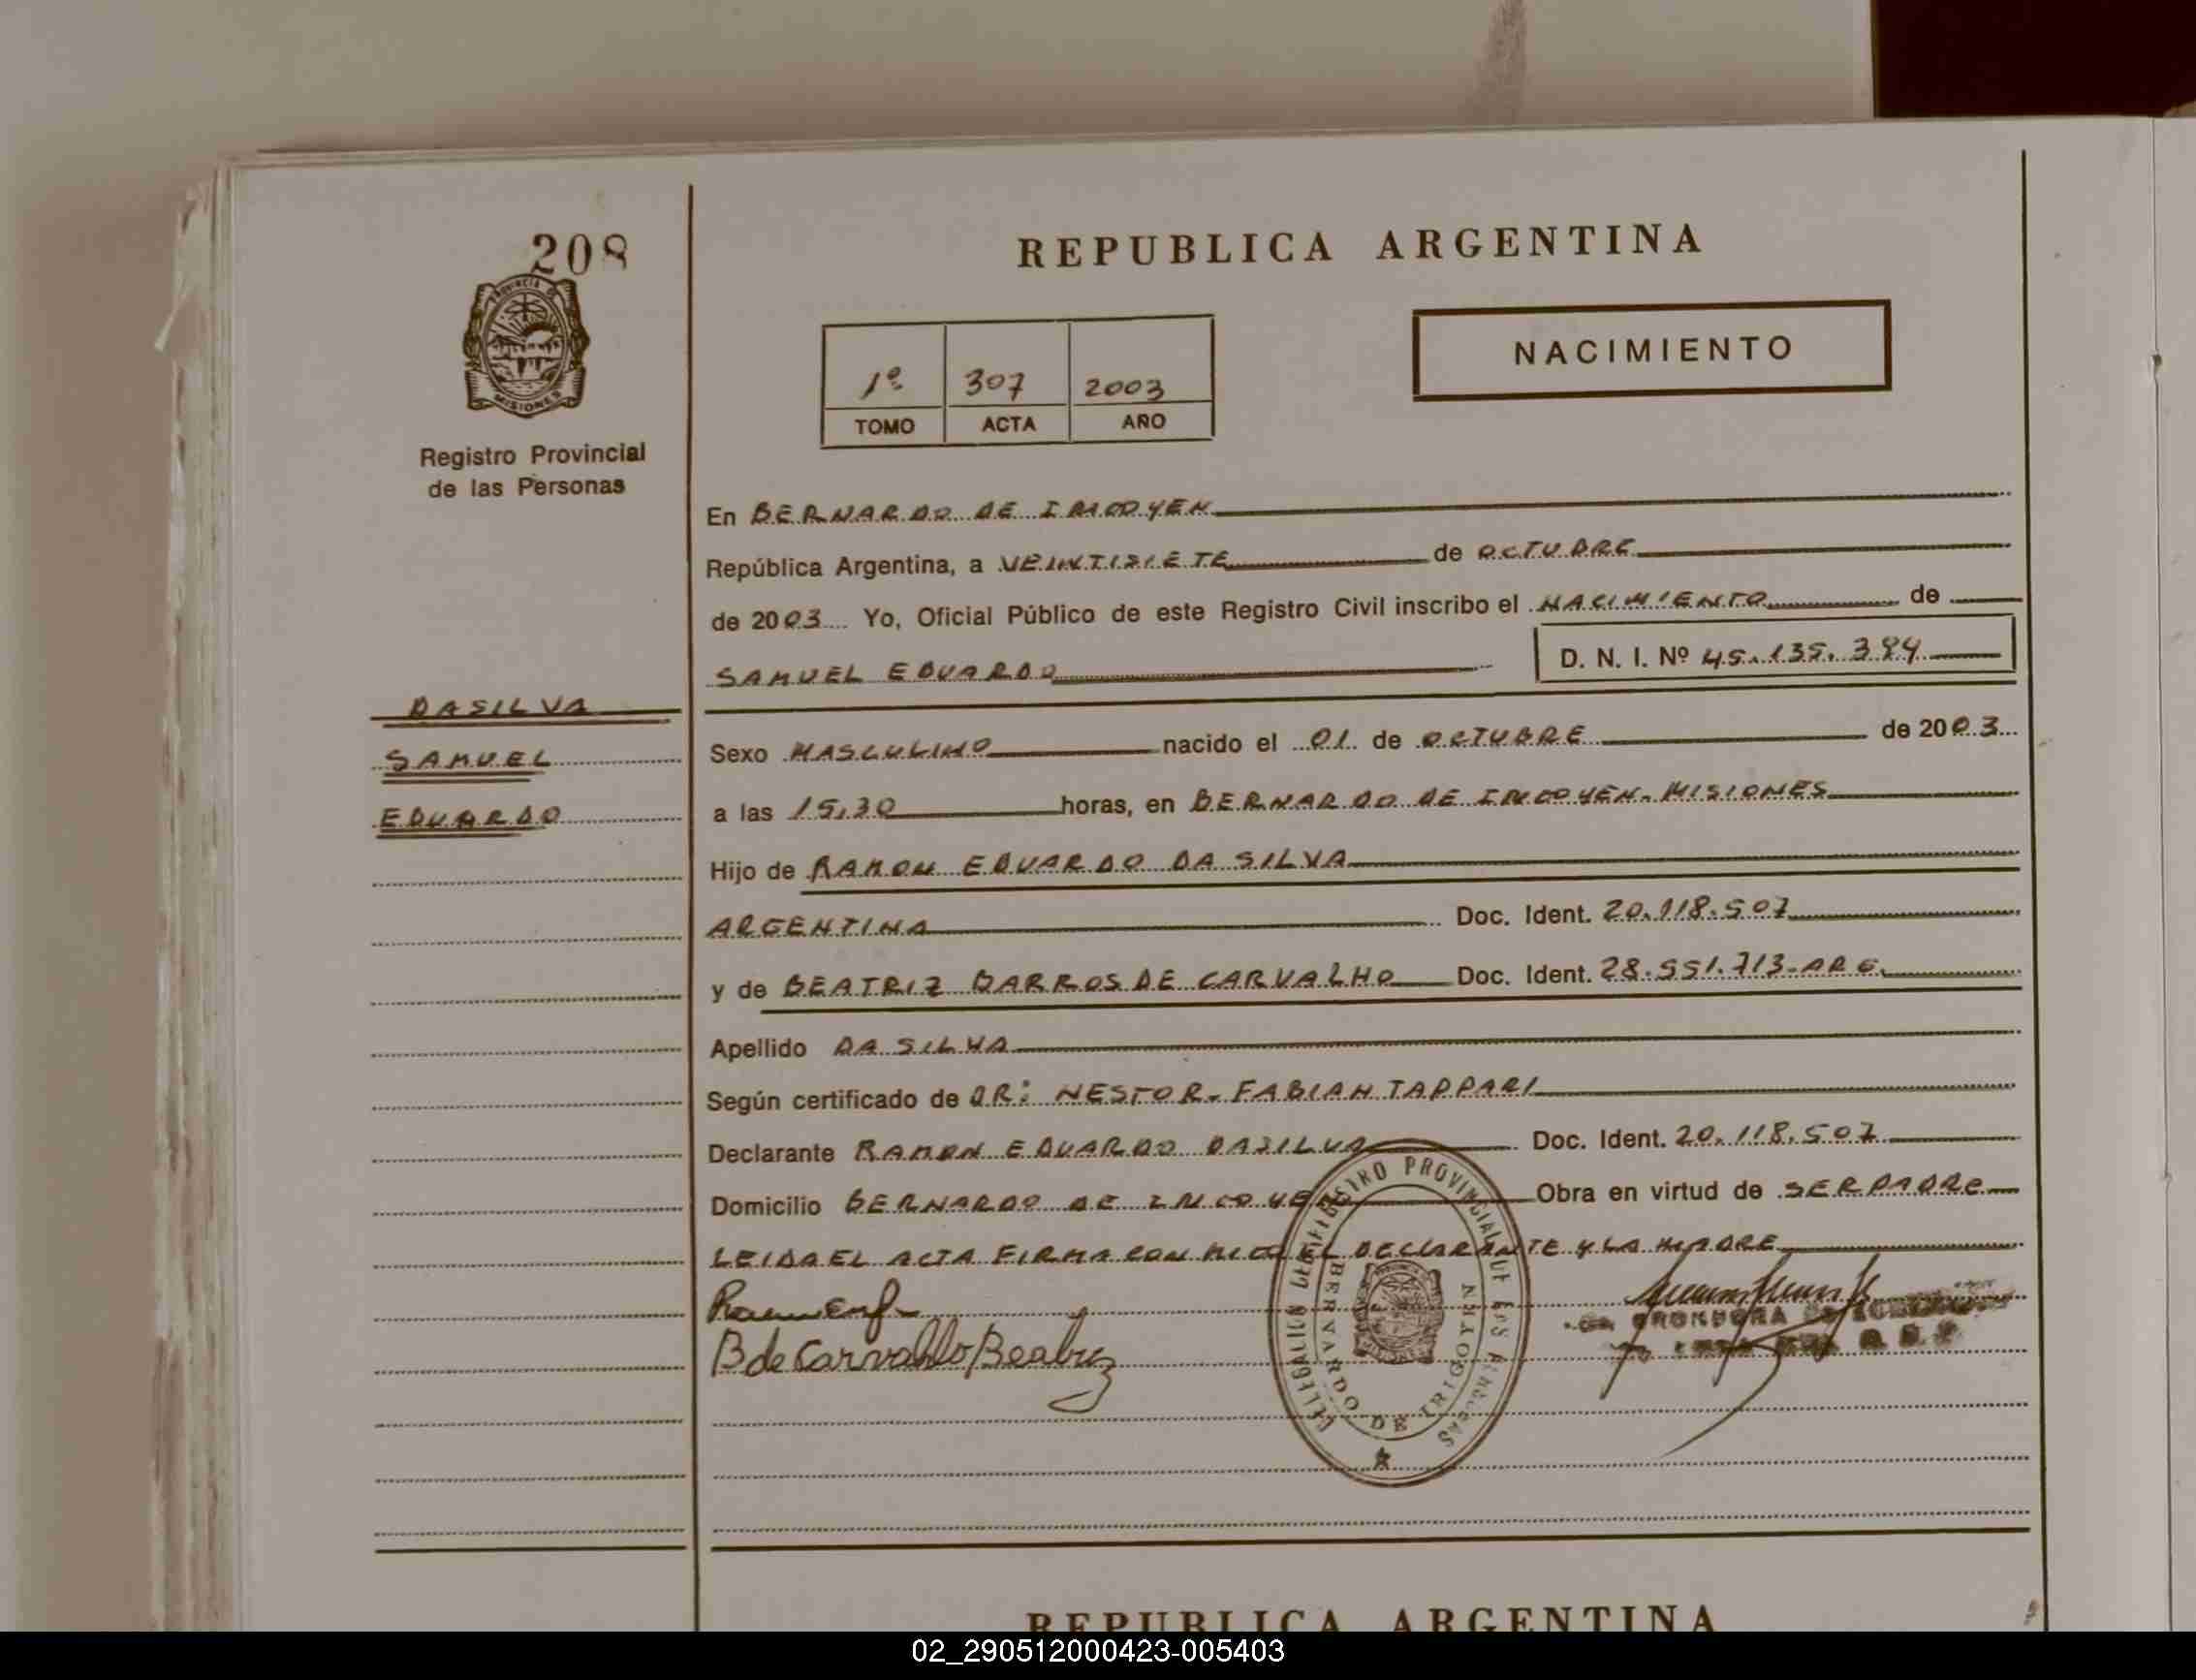 208
PROVINCIA DE
MISIONES
Registro Provincial
de las Personas
DASILVA
SAMUEL
EDUARDO
REPUBLICA ARGENTINA
1º 307 2003
TOMO ACTA AÑO
NACIMIENTO
En BERNARDO DE IRIGOYEN
República Argentina, a VEINTISIETE de OCTUBRE
de 2003 Yo, Oficial Público de este Registro Civil inscribo el NACIMIENTO de
SAMUEL EDUARDO D. N. I. Nº 45.135.384
Sexo MASCULINO nacido el 01 de OCTUBRE de 2003
a las 15,30 horas, en BERNARDO DE IRIGOYEN. MISIONES
Hijo de RAMON EDUARDO DA SILVA
ARGENTINA Doc. Ident. 20.118.507
y de BEATRIZ BARROS DE CARVALHO Doc. Ident. 28.551.713-ARG.
Apellido DA SILVA
Según certificado de DR: NESTOR. FABIAN TAPPARI
Declarante RAMON EDUARDO DASILVA Doc. Ident. 20.118.507
Domicilio BERNARDO DE IRIGOYEN Obra en virtud de SER PADRE
LEIDA EL ACTA FIRMA CON MIGO EL DECLARANTE Y LA MADRE
B de Carvahlo Beatriz
DELEGACION DEL REGISTRO PROVINCIAL DE LAS PERSONAS
BERNARDO DE IRIGOYEN
REPUBLICA ARGENTINA
02_290512000423-005403